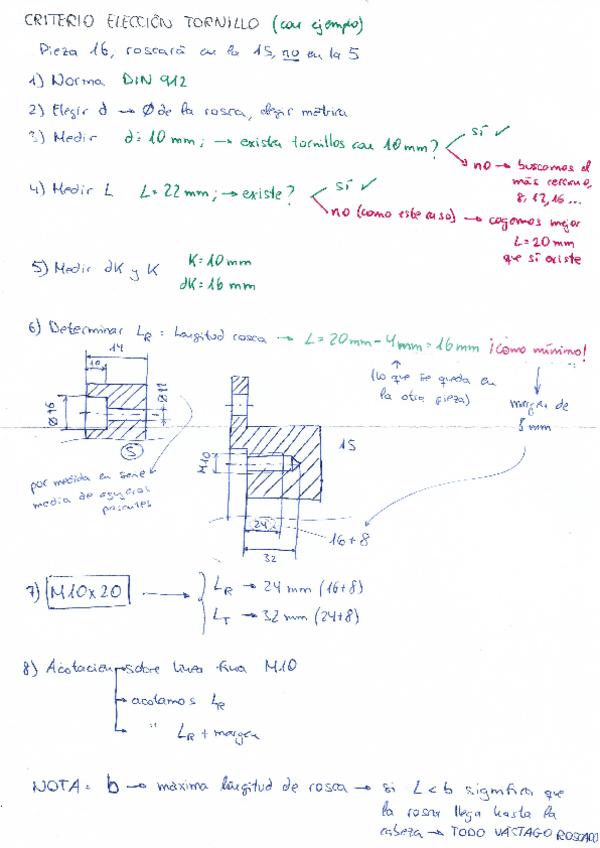 CRITERIO ELECCIÓN TORNILLO (con ejemplo)
Pieza 16, roscará en la 15, no en la 5
1) Norma DIN 912
2) Elegir d → Ø de la rosca, elegir métrica
3) Medir d = 10 mm; → existen tornillos con 10 mm?
sí ✓
no → buscamos el
más cercano,
8, 12, 16 ...
4) Medir L L = 22 mm; → existe?
sí ✓
no (como este caso) → cogemos mejor
L = 20 mm
que sí existe
5) Medir dK y K K = 10 mm
dK = 16 mm
6) Determinar LR = Longitud rosca → L = 20mm - 4mm = 16 mm ¡como mínimo!
(lo que se queda en
la otra pieza)
margen de
8 mm
14
10
Ø16
Ø11
5
por medida en serie
media de agujeros
pasantes
M10
15
24
32
16+8
7) M10x20 →
LR → 24 mm (16+8)
LT → 32 mm (24+8)
8) Acotación → sobre línea fina M10
→ acotamos LR
→ " LR + margen
NOTA: b → máxima longitud de rosca → si L < b significa que
la rosca llega hasta la
cabeza → TODO VÁSTAGO ROSCADO